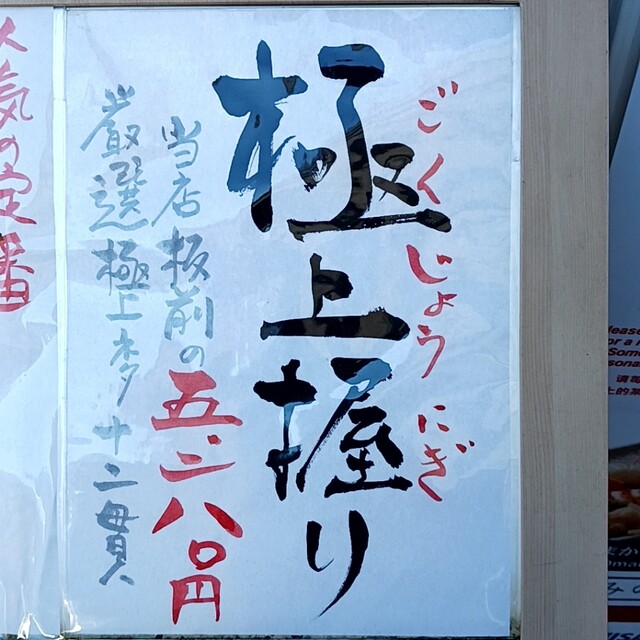 ごくじょう にぎ
極上握り
当店板前の
厳選極上ネタ十二貫
五二八〇円
人気の定番